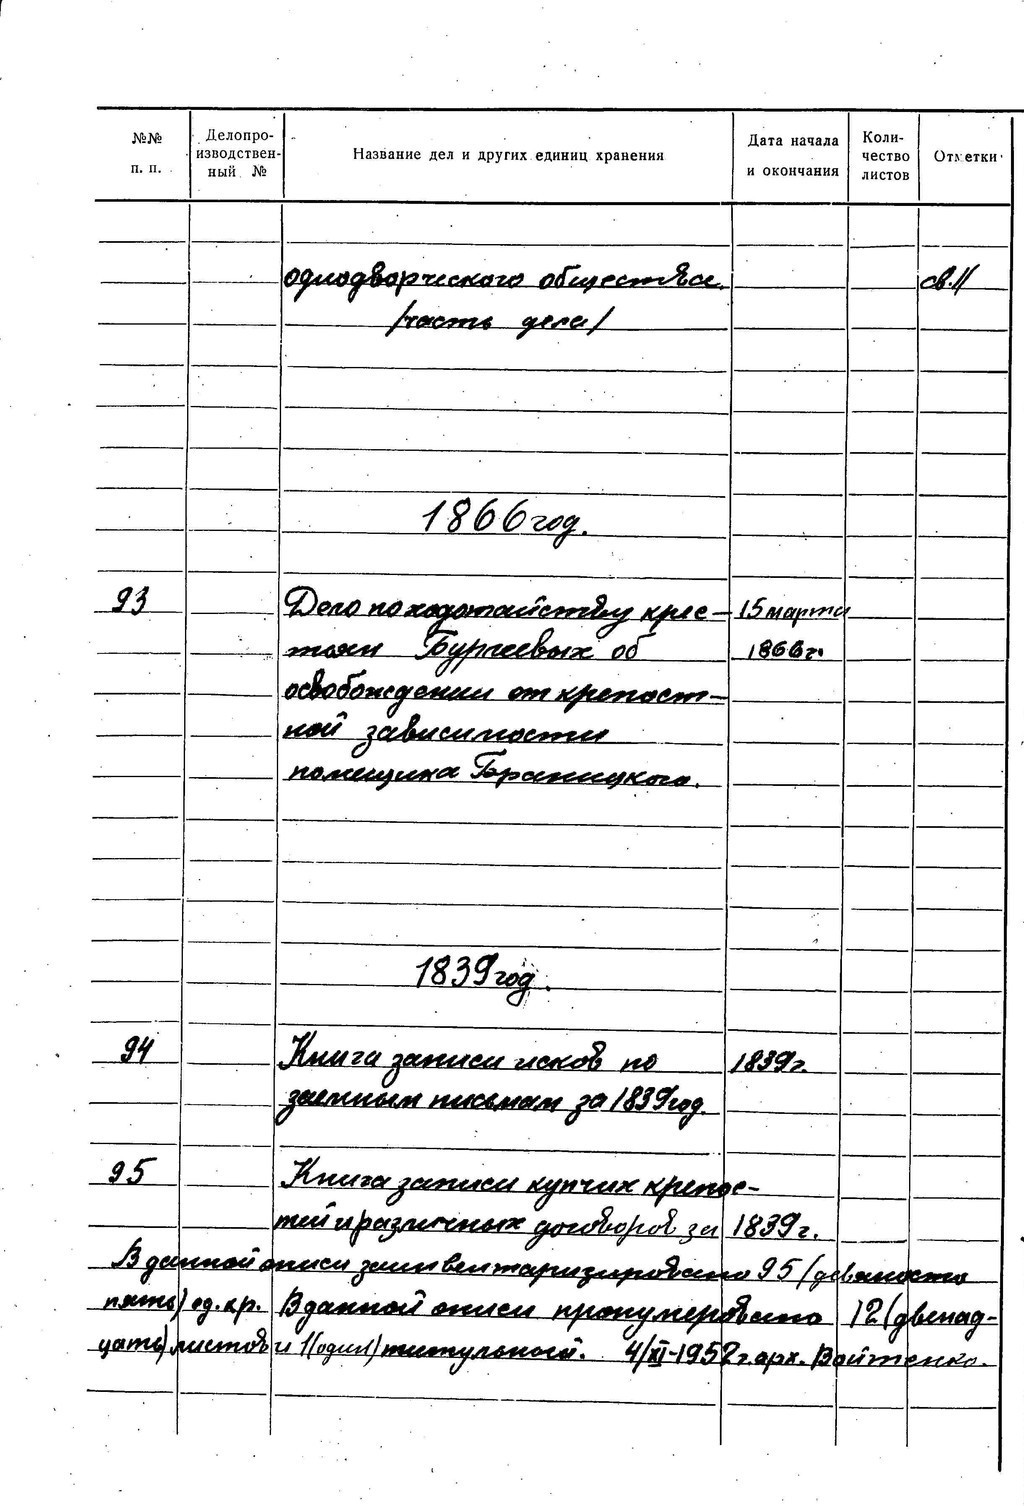 №№ п. п.
Делопро-изводствен-ный №
Название дел и других единиц хранения
Дата начала и окончания
Коли-чество листов
Отметки
однодворческого общества. св.11
/часть дела/
1866 год.
93 Дело по ходотайству крес- 15 марта
тьян Бургеевых об 1866 г.
освобождении от крепост-
ной зависимости
помещика Браницкого.
1839 год.
94 Книга записи исков по 1839 г.
заемным письмам за 1839 год.
95 Книга записи купчих крепос-
тей и различных договоров за 1839 г.
В данной описи заинвентаризировано 95 (девяносто
пять) ед. хр. В данной описи пронумеровано 12 (двенад-
цать) листов и 1 (один) титульной. 4/XI-1952 г. арх. Войтенко.